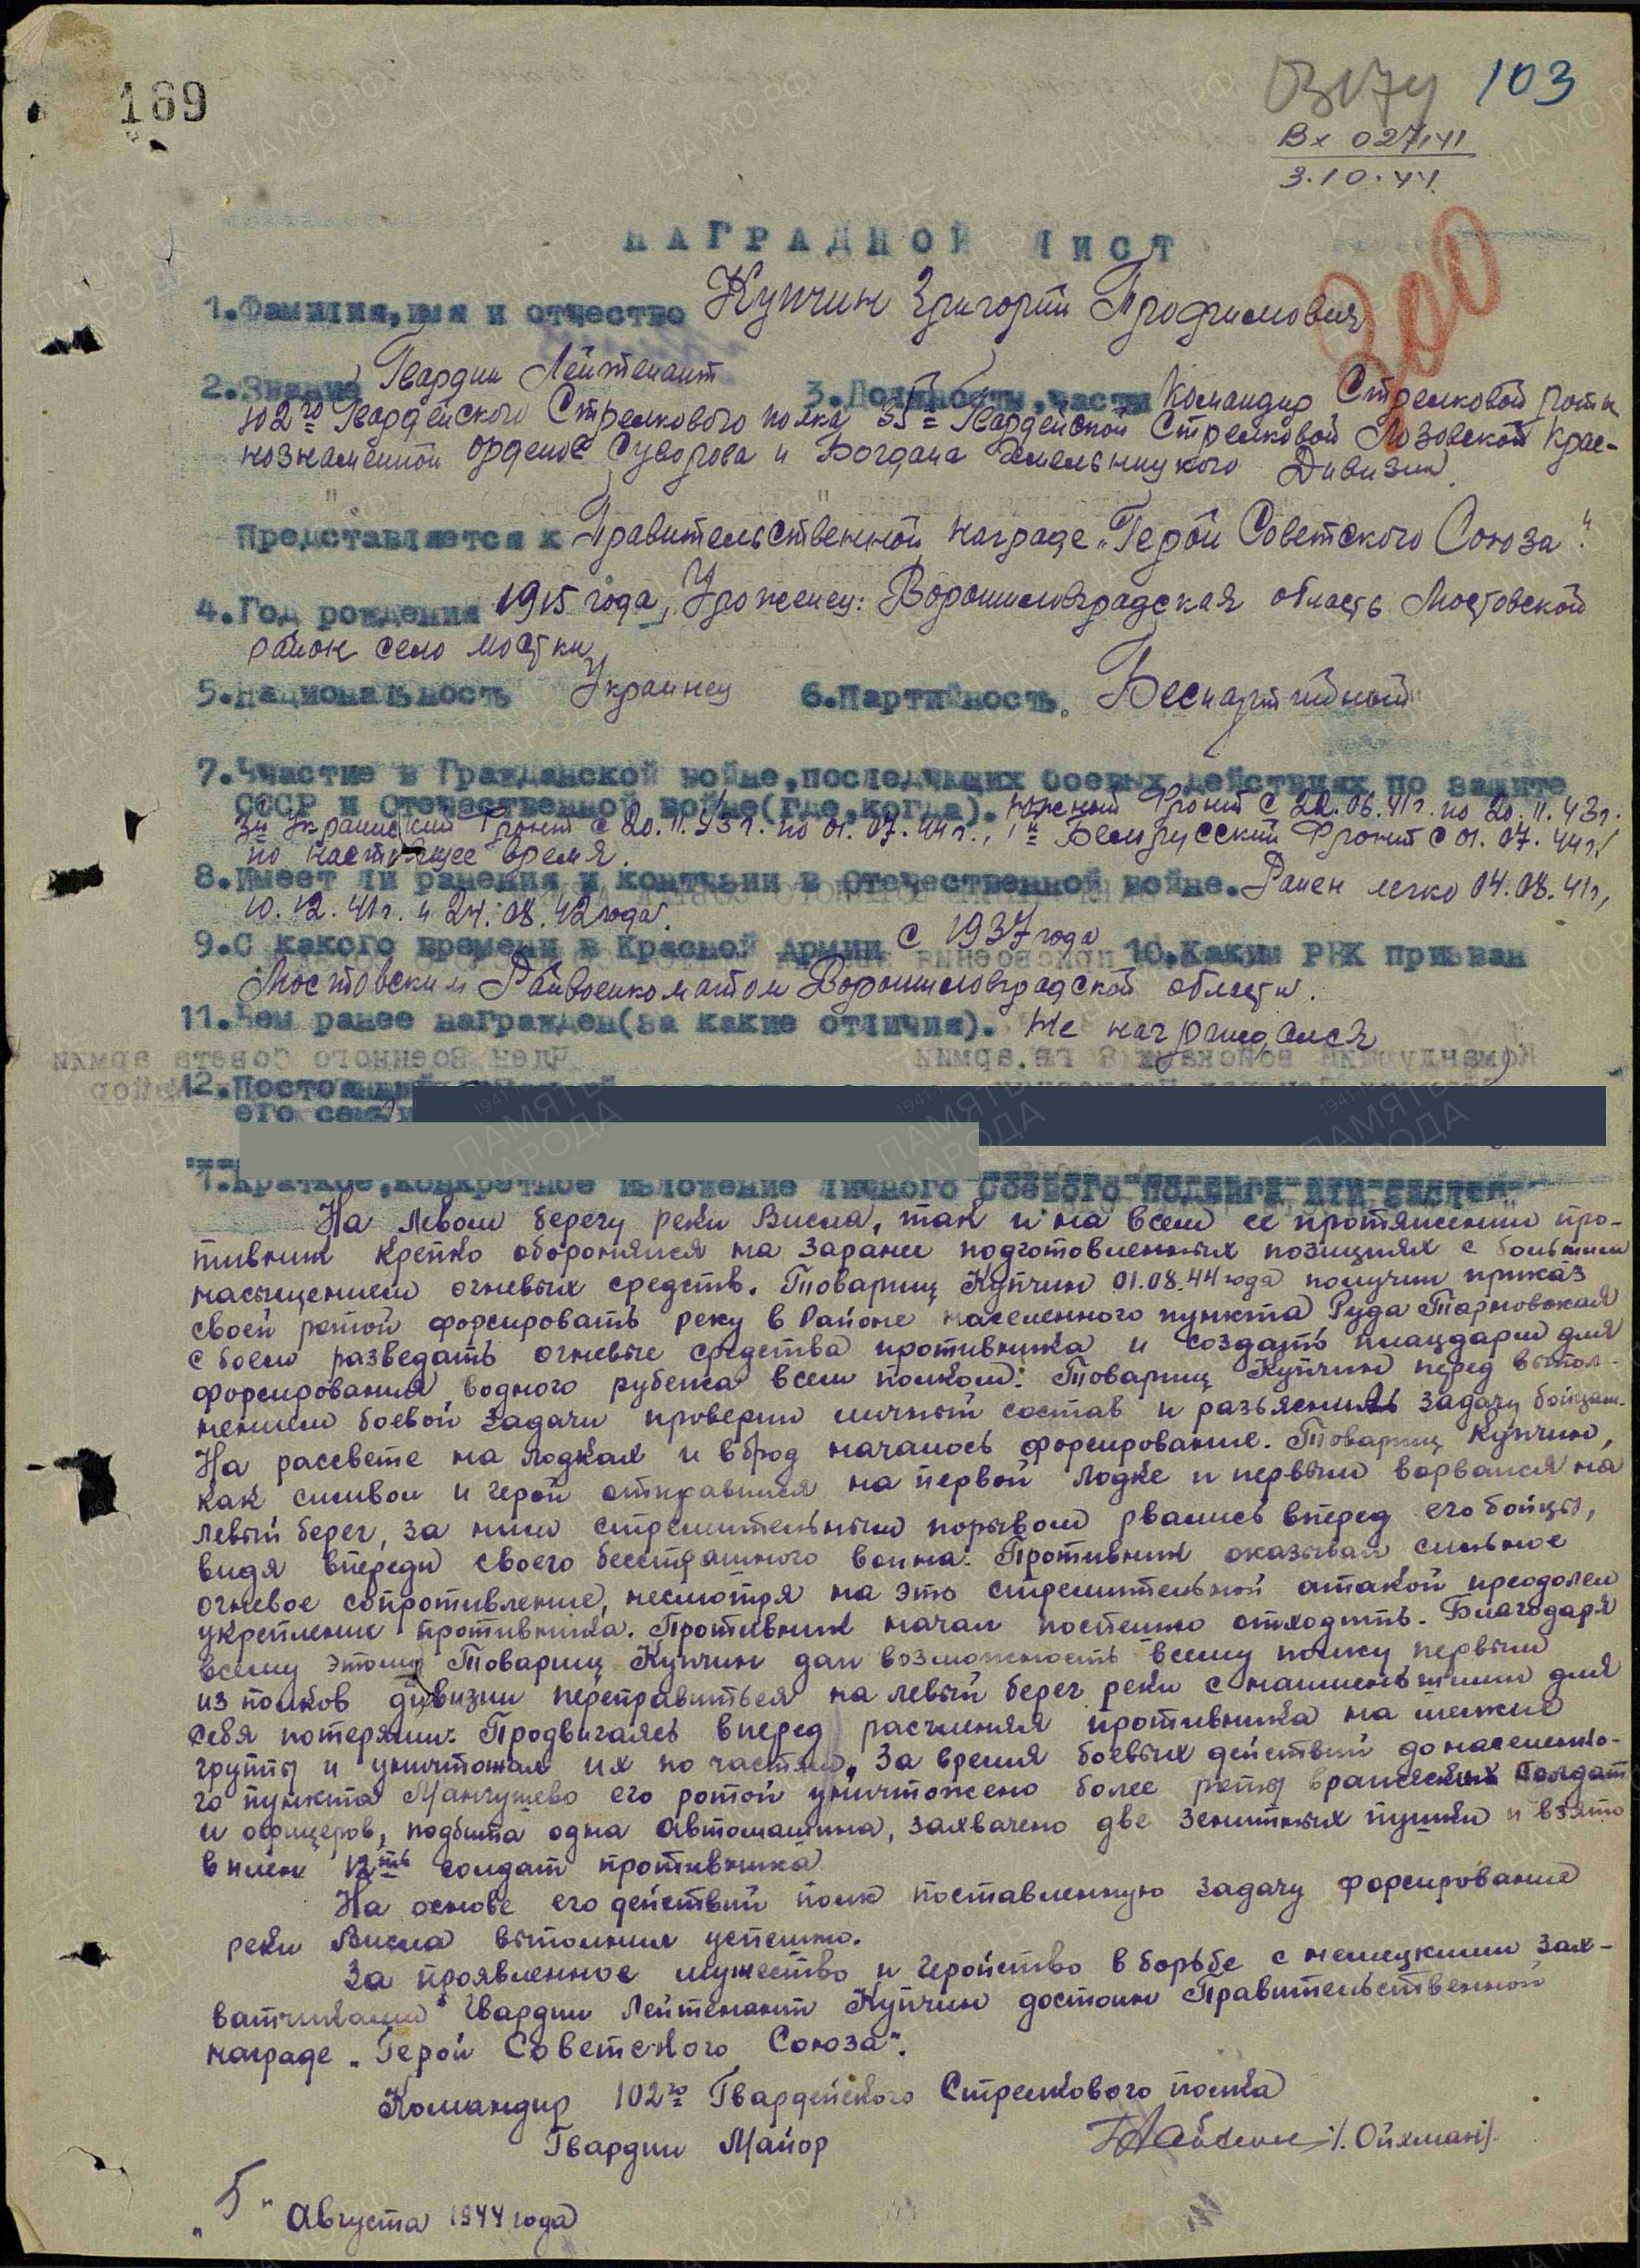 169
103
Вх 027141
3.10.44
НАГРАДНОЙ ЛИСТ
200
1.Фамилия,имя и отчество Купчин Григорий Трофимович
2.Звание Гвардии Лейтенант 3.Должность,часть Командир Стрелковой роты
102го Гвардейского Стрелкового полка 35й Гвардейской Стрелковой Лозовской Крас-
нознаменной орденов Суворова и Богдана Хмельницкого Дивизии
Представляется к Правительственной награде „Герой Советского Союза“.
4.Год рождения 1915 года, Уроженец: Ворошиловградская область Мостовской
район село Мостки
5.Национальность Украинец 6.Партийность. Беспартийный
7.Участие в Гражданской войне,последующих боевых действиях по защите
СССР и Отечественной войне(где,когда). Южный Фронт с 22.06.41г. по 20.11.43г.
3й Украинский Фронт с 20.11.43г. по 01.07.44г., 1й Белорусский Фронт с 01.07.44г.
по настоящее время.
8.Имеет ли ранения и контузии в Отечественной войне. Ранен легко 04.08.41г,
10.12.41г. и 24.08.42 года.
9.С какого времени в Красной Армии с 1937 года 10.Каким РВК призван
Мостовским Райвоенкоматом Ворошиловградской области.
11.Чем ранее награжден(за какие отличия). Не награждался
12.Постоянный
его семьи
1.Краткое,конкретное изложение личного боевого подвига или заслуг
На левом берегу реки Висла, так и на всем ее протяжении про-
тивник крепко оборонялся на заранее подготовленных позициях с большим
насыщением огневых средств. Товарищ Купчин 01.08.44 года получил приказ
своей ротой форсировать реку в районе населенного пункта Руда Тарновская
с боем разведать огневые средства противника и создать плацдарм для
форсирования водного рубежа всем полком. Товарищ Купчин перед выпол-
нением боевой задачи проверил личный состав и разъяснить задачу бойцам.
На рассвете на лодках и вброд началось форсирование. Товарищ Купчин,
как символ и герой отправился на первой лодке и первым ворвался на
левый берег, за ним стремительным порывом рвались вперед его бойцы,
видя впереди своего бесстрашного воина. Противник оказывал сильное
огневое сопротивление, несмотря на это стремительной атакой преодолел
укрепление противника. Противник начал поспешно отходить. Благодаря
всему этому Товарищ Купчин дал возможность всему полку первым
из полков дивизии переправиться на левый берег реки с наименьшими для
себя потерями. Продвигаясь вперед расчленял противника на мелкие
группы и уничтожал их по частям. За время боевых действий до населенно-
го пункта Мангушево его ротой уничтожено более роты вражеских солдат
и офицеров, подбита одна автомашина, захвачено две зенитных пушки и взято
в плен 12ть солдат противника
На основе его действий полк поставленную задачу форсирование
реки Висла выполнил успешно.
За проявленное мужество и геройство в борьбе с немецкими зах-
ватчиками Гвардии Лейтенант Купчин достоин Правительственной
награде „Герой Советского Союза“.
Командир 102го Гвардейского Стрелкового полка
Гвардии Майор /. Ойхман/.
„5“ Августа 1944 года